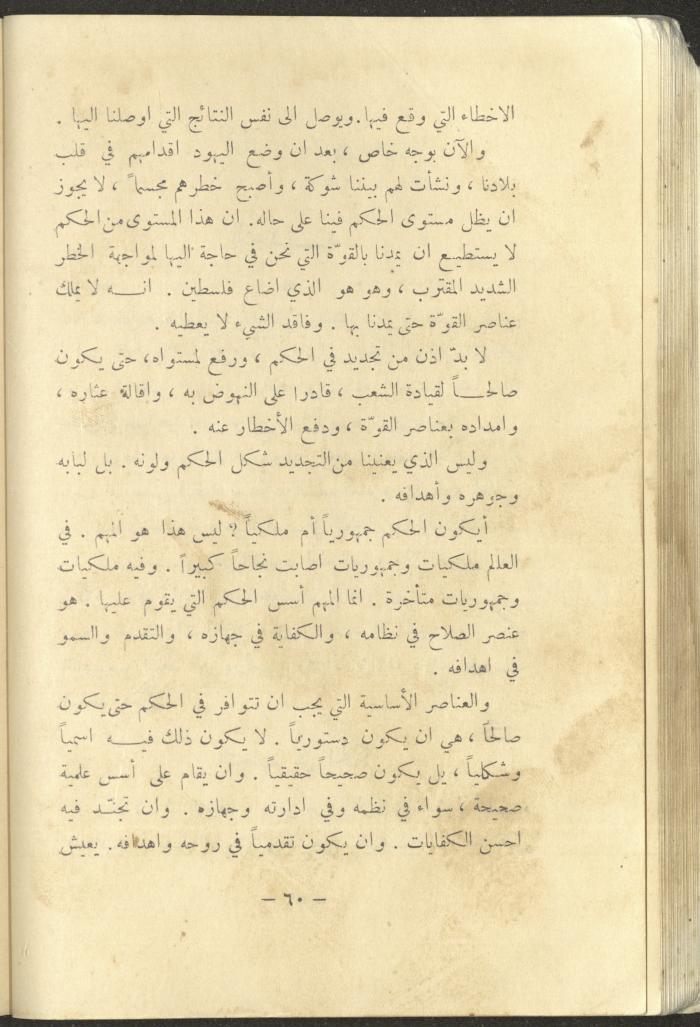 الاخطاء التي وقع فيها. ويوصل الى نفس النتائج التي اوصلنا اليها .
والآن بوجه خاص ، بعد ان وضع اليهود اقدامهم في قلب
بلادنا ، ونشأت لهم بيننا شوكة ، وأصبح خطرهم مجسماً ، لا يجوز
ان يظل مستوى الحكم فينا على حاله. ان هذا المستوى من الحكم
لا يستطيع ان يمدنا بالقوّة التي نحن في حاجة اليها لمواجهة الخطر
الشديد المقترب ، وهو هو الذي اضاع فلسطين . انه لا يملك
عناصر القوّة حتى يمدنا بها . وفاقد الشيء لا يعطيه .
لا بدّ اذن من تجديد في الحكم ، ورفع لمستواه، حتى يكون
صالحاً لقيادة الشعب ، قادرا على النهوض به ، واقالة عثاره ،
وامداده بعناصر القوّة ، ودفع الأخطار عنه .
وليس الذي يعنينا من التجديد شكل الحكم ولونه . بل لبابه
وجوهره وأهدافه .
أيكون الحكم جمهورياً أم ملكياً ؟ ليس هذا هو المهم . في
العالم ملكيات وجمهوريات اصابت نجاحاً كبيراً . وفيه ملكيات
وجمهوريات متأخرة . انما المهم أسس الحكم التي يقوم عليها . هو
عنصر الصلاح في نظامه ، والكفاية في جهازه ، والتقدم والسمو
في اهدافه .
والعناصر الأساسية التي يجب ان تتوافر في الحكم حتى يكون
صالحاً ، هي ان يكون دستورياً . لا يكون ذلك فيه اسمياً
وشكلياً ، يل يكون صحيحاً حقيقياً . وان يقام على أسس علمية
صحيحة ، سواء في نظمه وفي ادارته وجهازه . وان تجنّد فيه
احسن الكفايات . وان يكون تقدمياً في روحه واهدافه. يعيش
— ٦٠ —